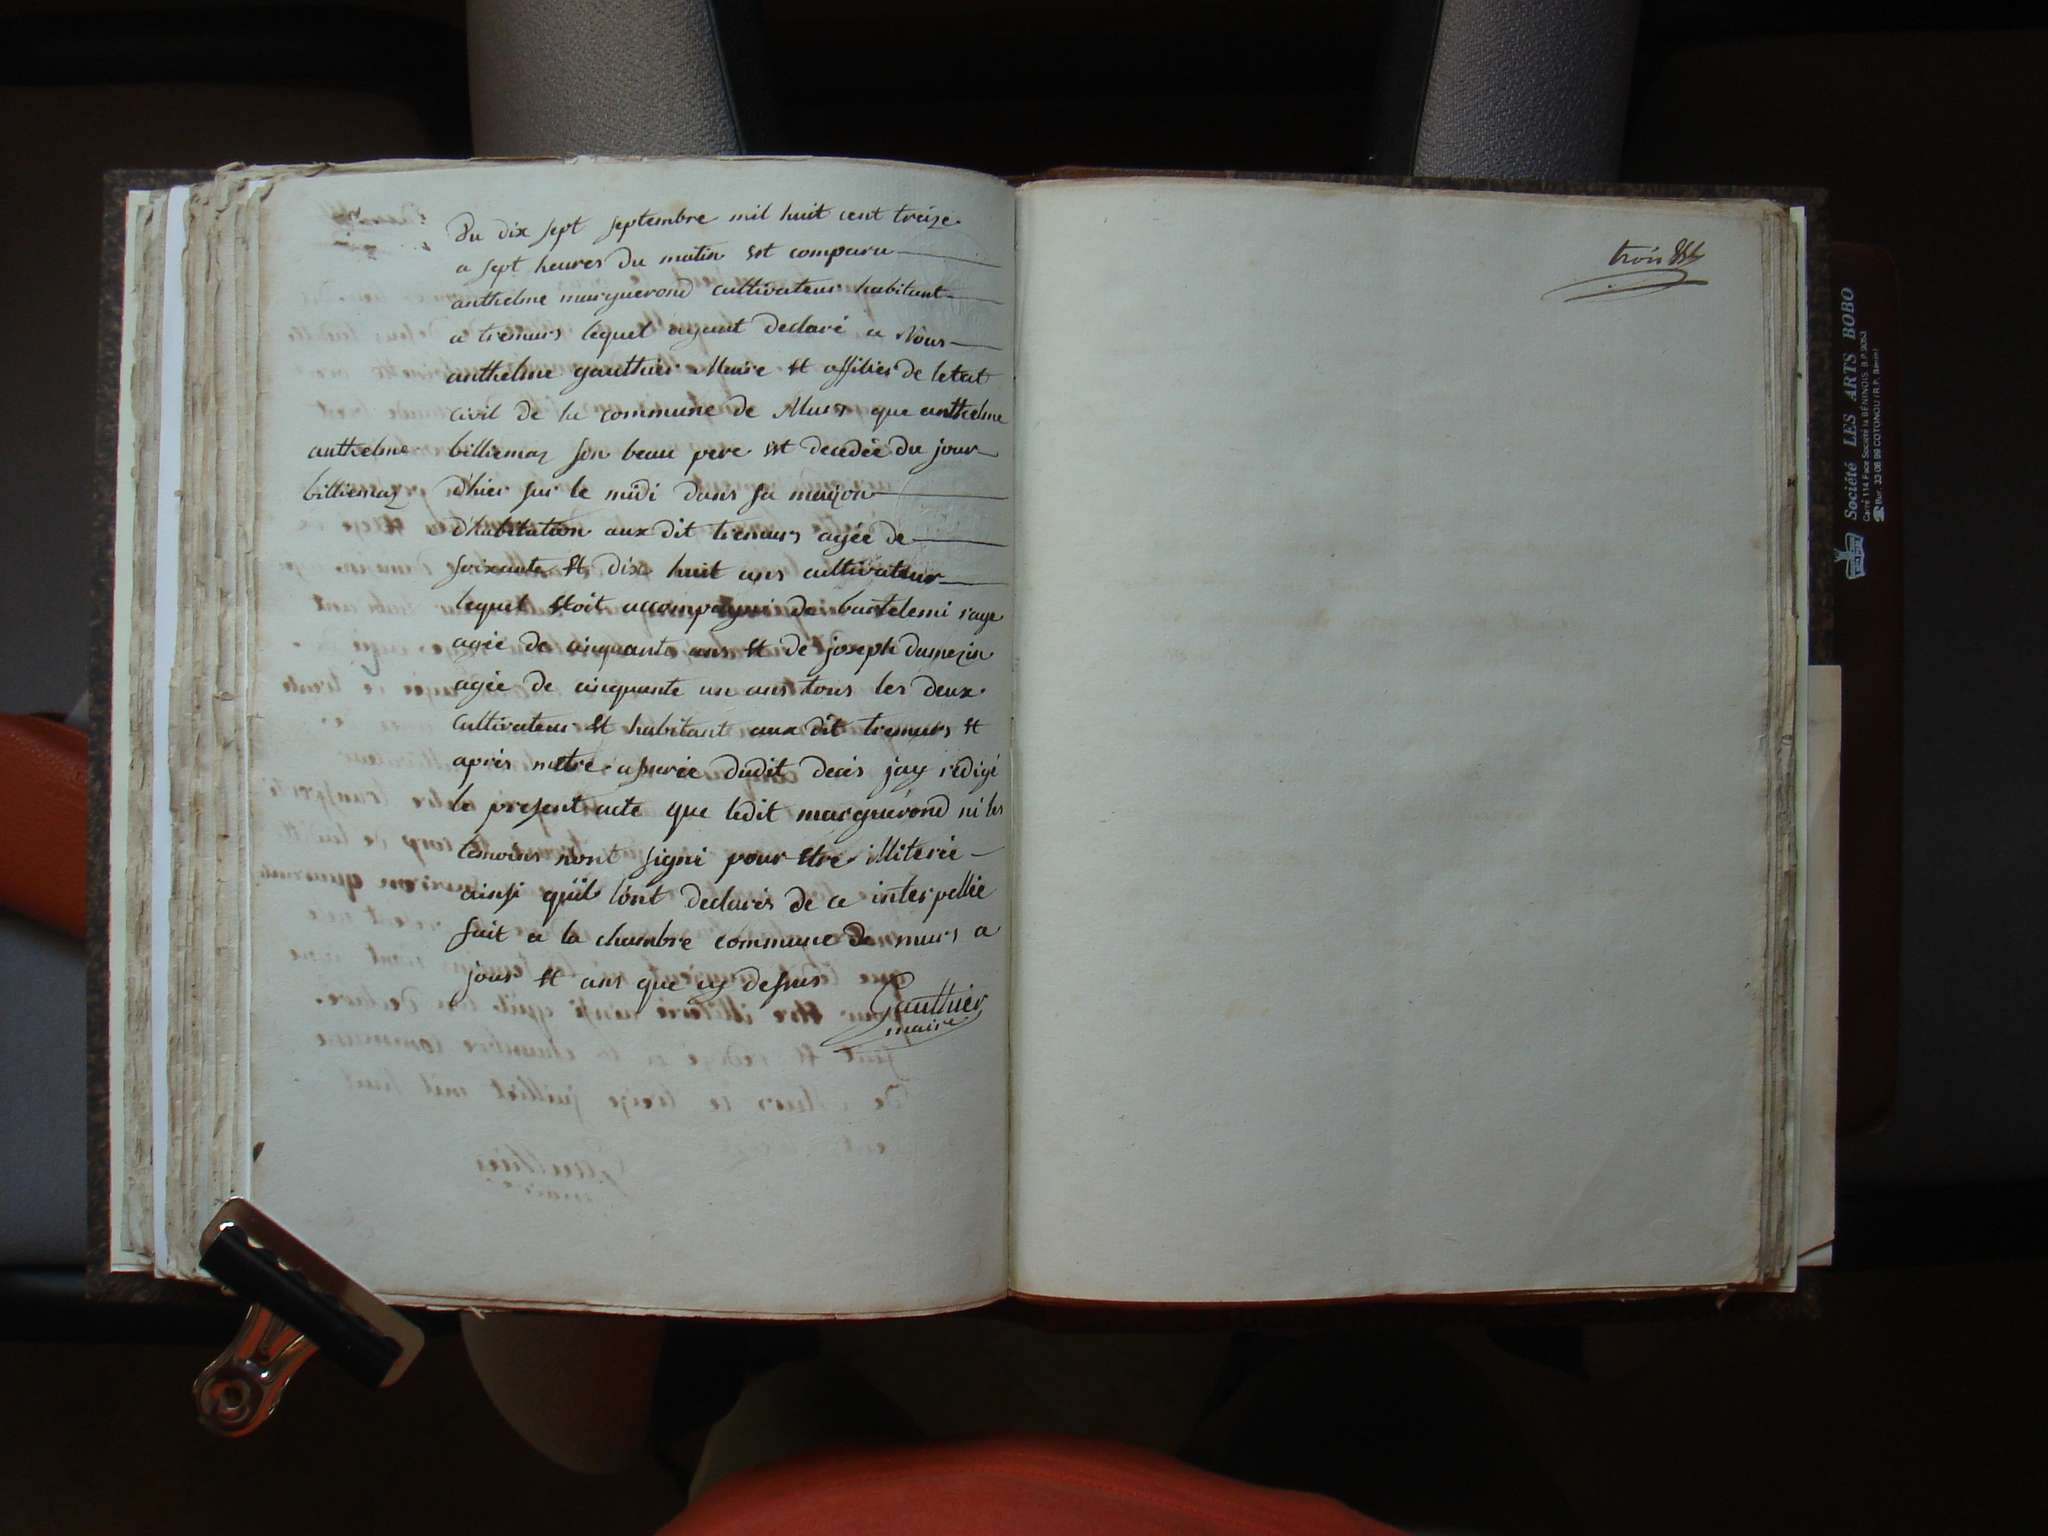 Du dix sept septembre mil huit cent treize
a sept heures du matin est comparu
anthelme marguerond cultivateur habitant
a tremurs lequel ayant declaré a Nous
anthelme gauthier Maire et officier de letat
civil de la commune de Murs que anthelme
anthelme
billiemaz
billiemaz son beau pere est decedée du jour
d'hier sur le midi dans sa maizon
d'habitation aux dit tremurs agée de
soixante et dix huit ans cultivateur
lequel etoit accompagné de bartelemi rage
agée de cinquante ans et de joseph dumezin
agée de cinquante un ans tous les deux
cultivateur et habitant aux dit tremurs et
après metre assurée dudit decés jay redigé
le present acte que ledit marguerond ni les
temoins nont signé pour etre illiterée
ainsi quil lont declarés de ce interpellée
fait a la chambre commune de murs a
jour et ans que cy dessus
Gauthier
maire
trois
Société LES ARTS BOBO
Carré 114 Face Société la BÉNINOIS. B.P. 9053
Bur. 33 08 99 COTONOU (R.P. Bénin)